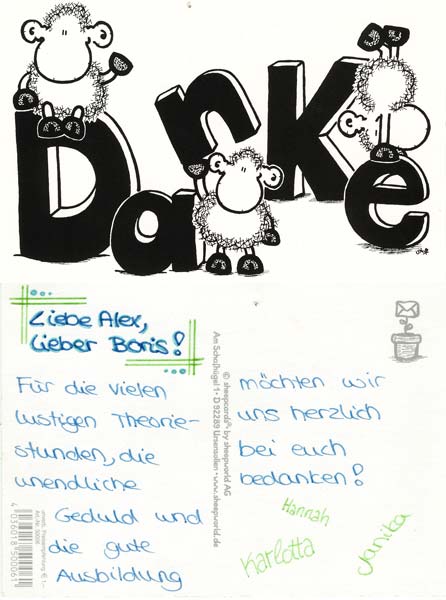 Danke
Liebe Alex,
lieber Boris!
Für die vielen
lustigen Theorie-
stunden, die
unendliche
Geduld und
die gute
Ausbildung
möchten wir
uns herzlich
bei euch
bedanken!
Hannah
Karlotta
Janika
© sheepcards® by sheepworld AG
Am Schafhügel 1 • D-92289 Ursensollen • www.sheepworld.de
4 036018 500061